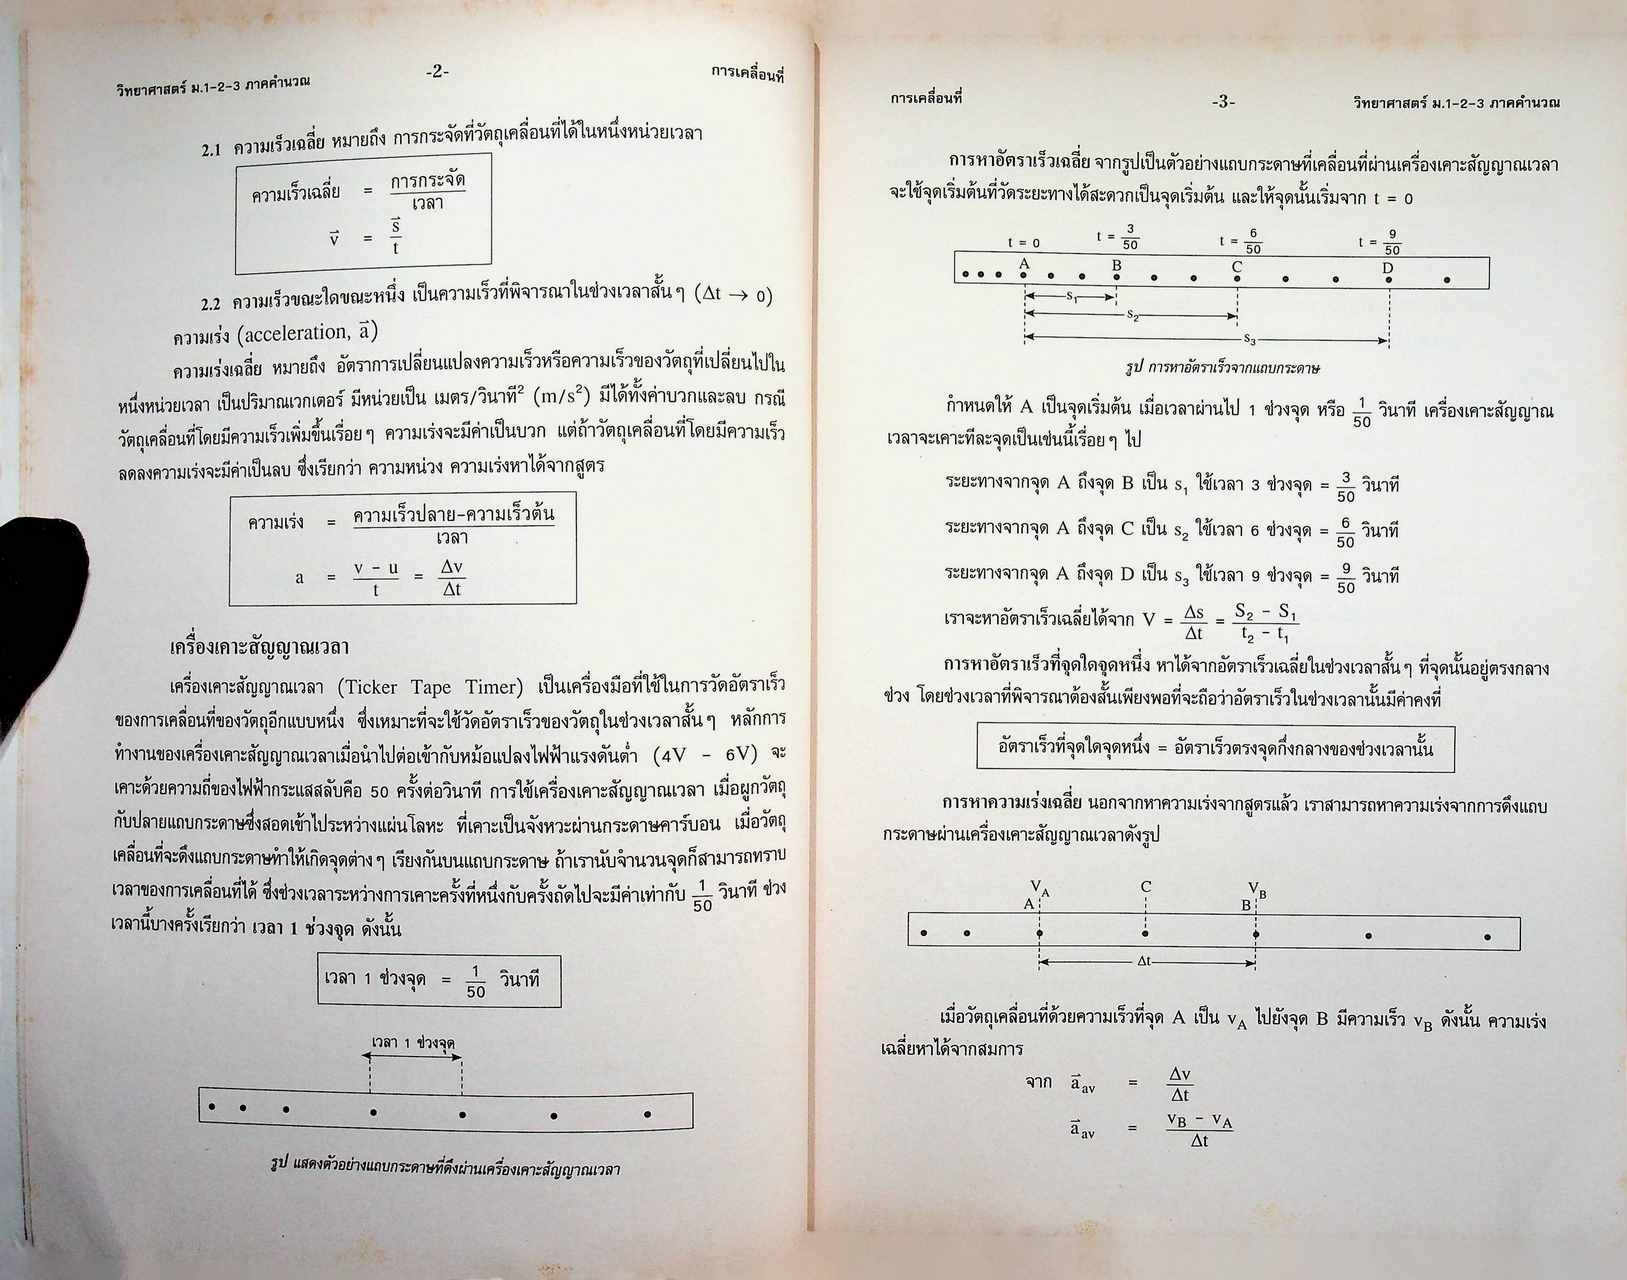 วิทยาศาสตร์ ม.1-2-3 ภาคคำนวณ -2- การเคลื่อนที่
2.1 ความเร็วเฉลี่ย หมายถึง การกระจัดที่วัตถุเคลื่อนที่ได้ในหนึ่งหน่วยเวลา
ความเร็วเฉลี่ย = การกระจัด / เวลา
v⃗ = s⃗ / t
2.2 ความเร็วขณะใดขณะหนึ่ง เป็นความเร็วที่พิจารณาในช่วงเวลาสั้น ๆ (Δt → 0)
ความเร่ง (acceleration, a⃗)
ความเร่งเฉลี่ย หมายถึง อัตราการเปลี่ยนแปลงความเร็วหรือความเร็วของวัตถุที่เปลี่ยนไปใน
หนึ่งหน่วยเวลา เป็นปริมาณเวกเตอร์ มีหน่วยเป็น เมตร/วินาที² (m/s²) มีได้ทั้งค่าบวกและลบ กรณี
วัตถุเคลื่อนที่โดยมีความเร็วเพิ่มขึ้นเรื่อย ๆ ความเร่งจะมีค่าเป็นบวก แต่ถ้าวัตถุเคลื่อนที่โดยมีความเร็ว
ลดลงความเร่งจะมีค่าเป็นลบ ซึ่งเรียกว่า ความหน่วง ความเร่งหาได้จากสูตร
ความเร่ง = ความเร็วปลาย-ความเร็วต้น / เวลา
a = v - u / t = Δv / Δt
เครื่องเคาะสัญญาณเวลา
เครื่องเคาะสัญญาณเวลา (Ticker Tape Timer) เป็นเครื่องมือที่ใช้ในการวัดอัตราเร็ว
ของการเคลื่อนที่ของวัตถุอีกแบบหนึ่ง ซึ่งเหมาะที่จะใช้วัดอัตราเร็วของวัตถุในช่วงเวลาสั้น ๆ หลักการ
ทำงานของเครื่องเคาะสัญญาณเวลาเมื่อนำไปต่อเข้ากับหม้อแปลงไฟฟ้าแรงดันต่ำ (4V - 6V) จะ
เคาะด้วยความถี่ของไฟฟ้ากระแสสลับคือ 50 ครั้งต่อวินาที การใช้เครื่องเคาะสัญญาณเวลา เมื่อผูกวัตถุ
กับปลายแถบกระดาษซึ่งสอดเข้าไประหว่างแผ่นโลหะ ที่เคาะเป็นจังหวะผ่านกระดาษคาร์บอน เมื่อวัตถุ
เคลื่อนที่จะดึงแถบกระดาษทำให้เกิดจุดต่าง ๆ เรียงกันบนแถบกระดาษ ถ้าเรานับจำนวนจุดก็สามารถทราบ
เวลาของการเคลื่อนที่ได้ ซึ่งช่วงเวลาระหว่างการเคาะครั้งที่หนึ่งกับครั้งถัดไปจะมีค่าเท่ากับ 1/50 วินาที ช่วง
เวลานี้บางครั้งเรียกว่า เวลา 1 ช่วงจุด ดังนั้น
เวลา 1 ช่วงจุด = 1/50 วินาที
เวลา 1 ช่วงจุด
รูป แสดงตัวอย่างแถบกระดาษที่ดึงผ่านเครื่องเคาะสัญญาณเวลา
การเคลื่อนที่ -3- วิทยาศาสตร์ ม.1-2-3 ภาคคำนวณ
การหาอัตราเร็วเฉลี่ย จากรูปเป็นตัวอย่างแถบกระดาษที่เคลื่อนที่ผ่านเครื่องเคาะสัญญาณเวลา
จะใช้จุดเริ่มต้นที่วัดระยะทางได้สะดวกเป็นจุดเริ่มต้น และให้จุดนั้นเริ่มจาก t = 0
t = 0 t = 3/50 t = 6/50 t = 9/50
A B C D
s₁
s₂
s₃
รูป การหาอัตราเร็วจากแถบกระดาษ
กำหนดให้ A เป็นจุดเริ่มต้น เมื่อเวลาผ่านไป 1 ช่วงจุด หรือ 1/50 วินาที เครื่องเคาะสัญญาณ
เวลาจะเคาะทีละจุดเป็นเช่นนี้เรื่อย ๆ ไป
ระยะทางจากจุด A ถึงจุด B เป็น s₁ ใช้เวลา 3 ช่วงจุด = 3/50 วินาที
ระยะทางจากจุด A ถึงจุด C เป็น s₂ ใช้เวลา 6 ช่วงจุด = 6/50 วินาที
ระยะทางจากจุด A ถึงจุด D เป็น s₃ ใช้เวลา 9 ช่วงจุด = 9/50 วินาที
เราจะหาอัตราเร็วเฉลี่ยได้จาก V = Δs/Δt = S₂ - S₁ / t₂ - t₁
การหาอัตราเร็วที่จุดใดจุดหนึ่ง หาได้จากอัตราเร็วเฉลี่ยในช่วงเวลาสั้น ๆ ที่จุดนั้นอยู่ตรงกลาง
ช่วง โดยช่วงเวลาที่พิจารณาต้องสั้นเพียงพอที่จะถือว่าอัตราเร็วในช่วงเวลานั้นมีค่าคงที่
อัตราเร็วที่จุดใดจุดหนึ่ง = อัตราเร็วตรงจุดกึ่งกลางของช่วงเวลานั้น
การหาความเร่งเฉลี่ย นอกจากหาความเร่งจากสูตรแล้ว เราสามารถหาความเร่งจากการดึงแถบ
กระดาษผ่านเครื่องเคาะสัญญาณเวลาดังรูป
V_A C V_B
A B
Δt
เมื่อวัตถุเคลื่อนที่ด้วยความเร็วที่จุด A เป็น v_A ไปยังจุด B มีความเร็ว v_B ดังนั้น ความเร่ง
เฉลี่ยหาได้จากสมการ
จาก a⃗_av = Δv / Δt
a⃗_av = v_B - v_A / Δt